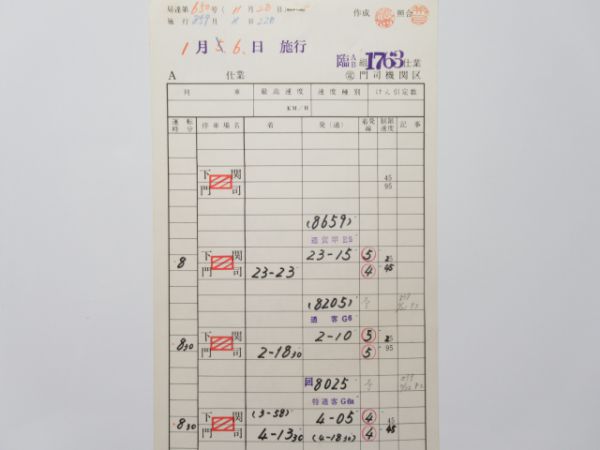 局達第650号(11月20日
作成 照合
施行859号 11月22日
1月5.6.日 施行
臨 A B 組 1763 仕業
A 仕業
門司機関区
列 車 最高速度 速度種別 けん引定数
KM/H
運転時分 停車場名 着 発(通) 着発線 制限速度 記事
下関 45
門司 95
(8659)
通貨甲E5
8 下関 23-15 5 25
門司 23-23 4 45
(8205)
通客G6
830 下関 2-10 5 25
門司 2-1830 5 95
回8025
特通客G6a
830 下関 (3-58) 4-05 4 45
門司 4-1330 (4-1830) 4 45